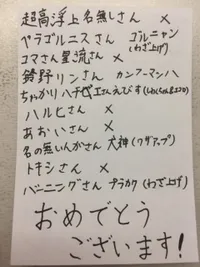 超高浮上名無しさん ×
ヤラゴルニスさん ゴルニャン
(わざ上げ)
コマさん星流さん ×
鈴野リンさん カンフーマン ハ
ちゃかりハチ さんえびす
ハルヒさん ×
あおいさん ×
名の無いんがさん 犬神(ワザアップ)
トキシさん ×
バーニングさん ブラカク(わざ上げ)
おめでとう
ございます!